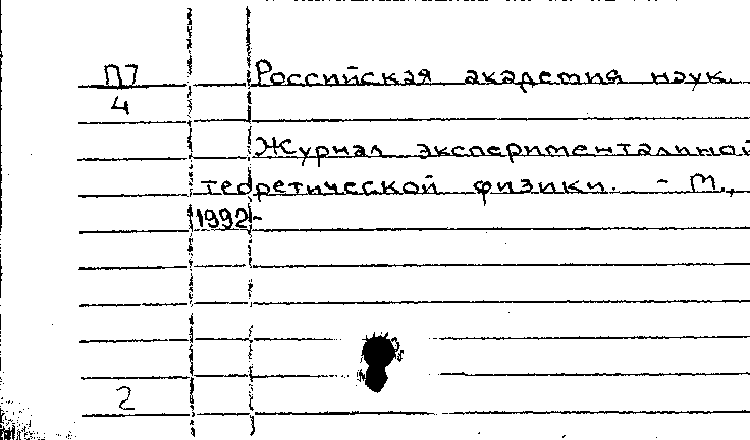 П7 Российская академия наук.
4
Журнал экспериментальной
теоретической физики. - М.,
1992-
2